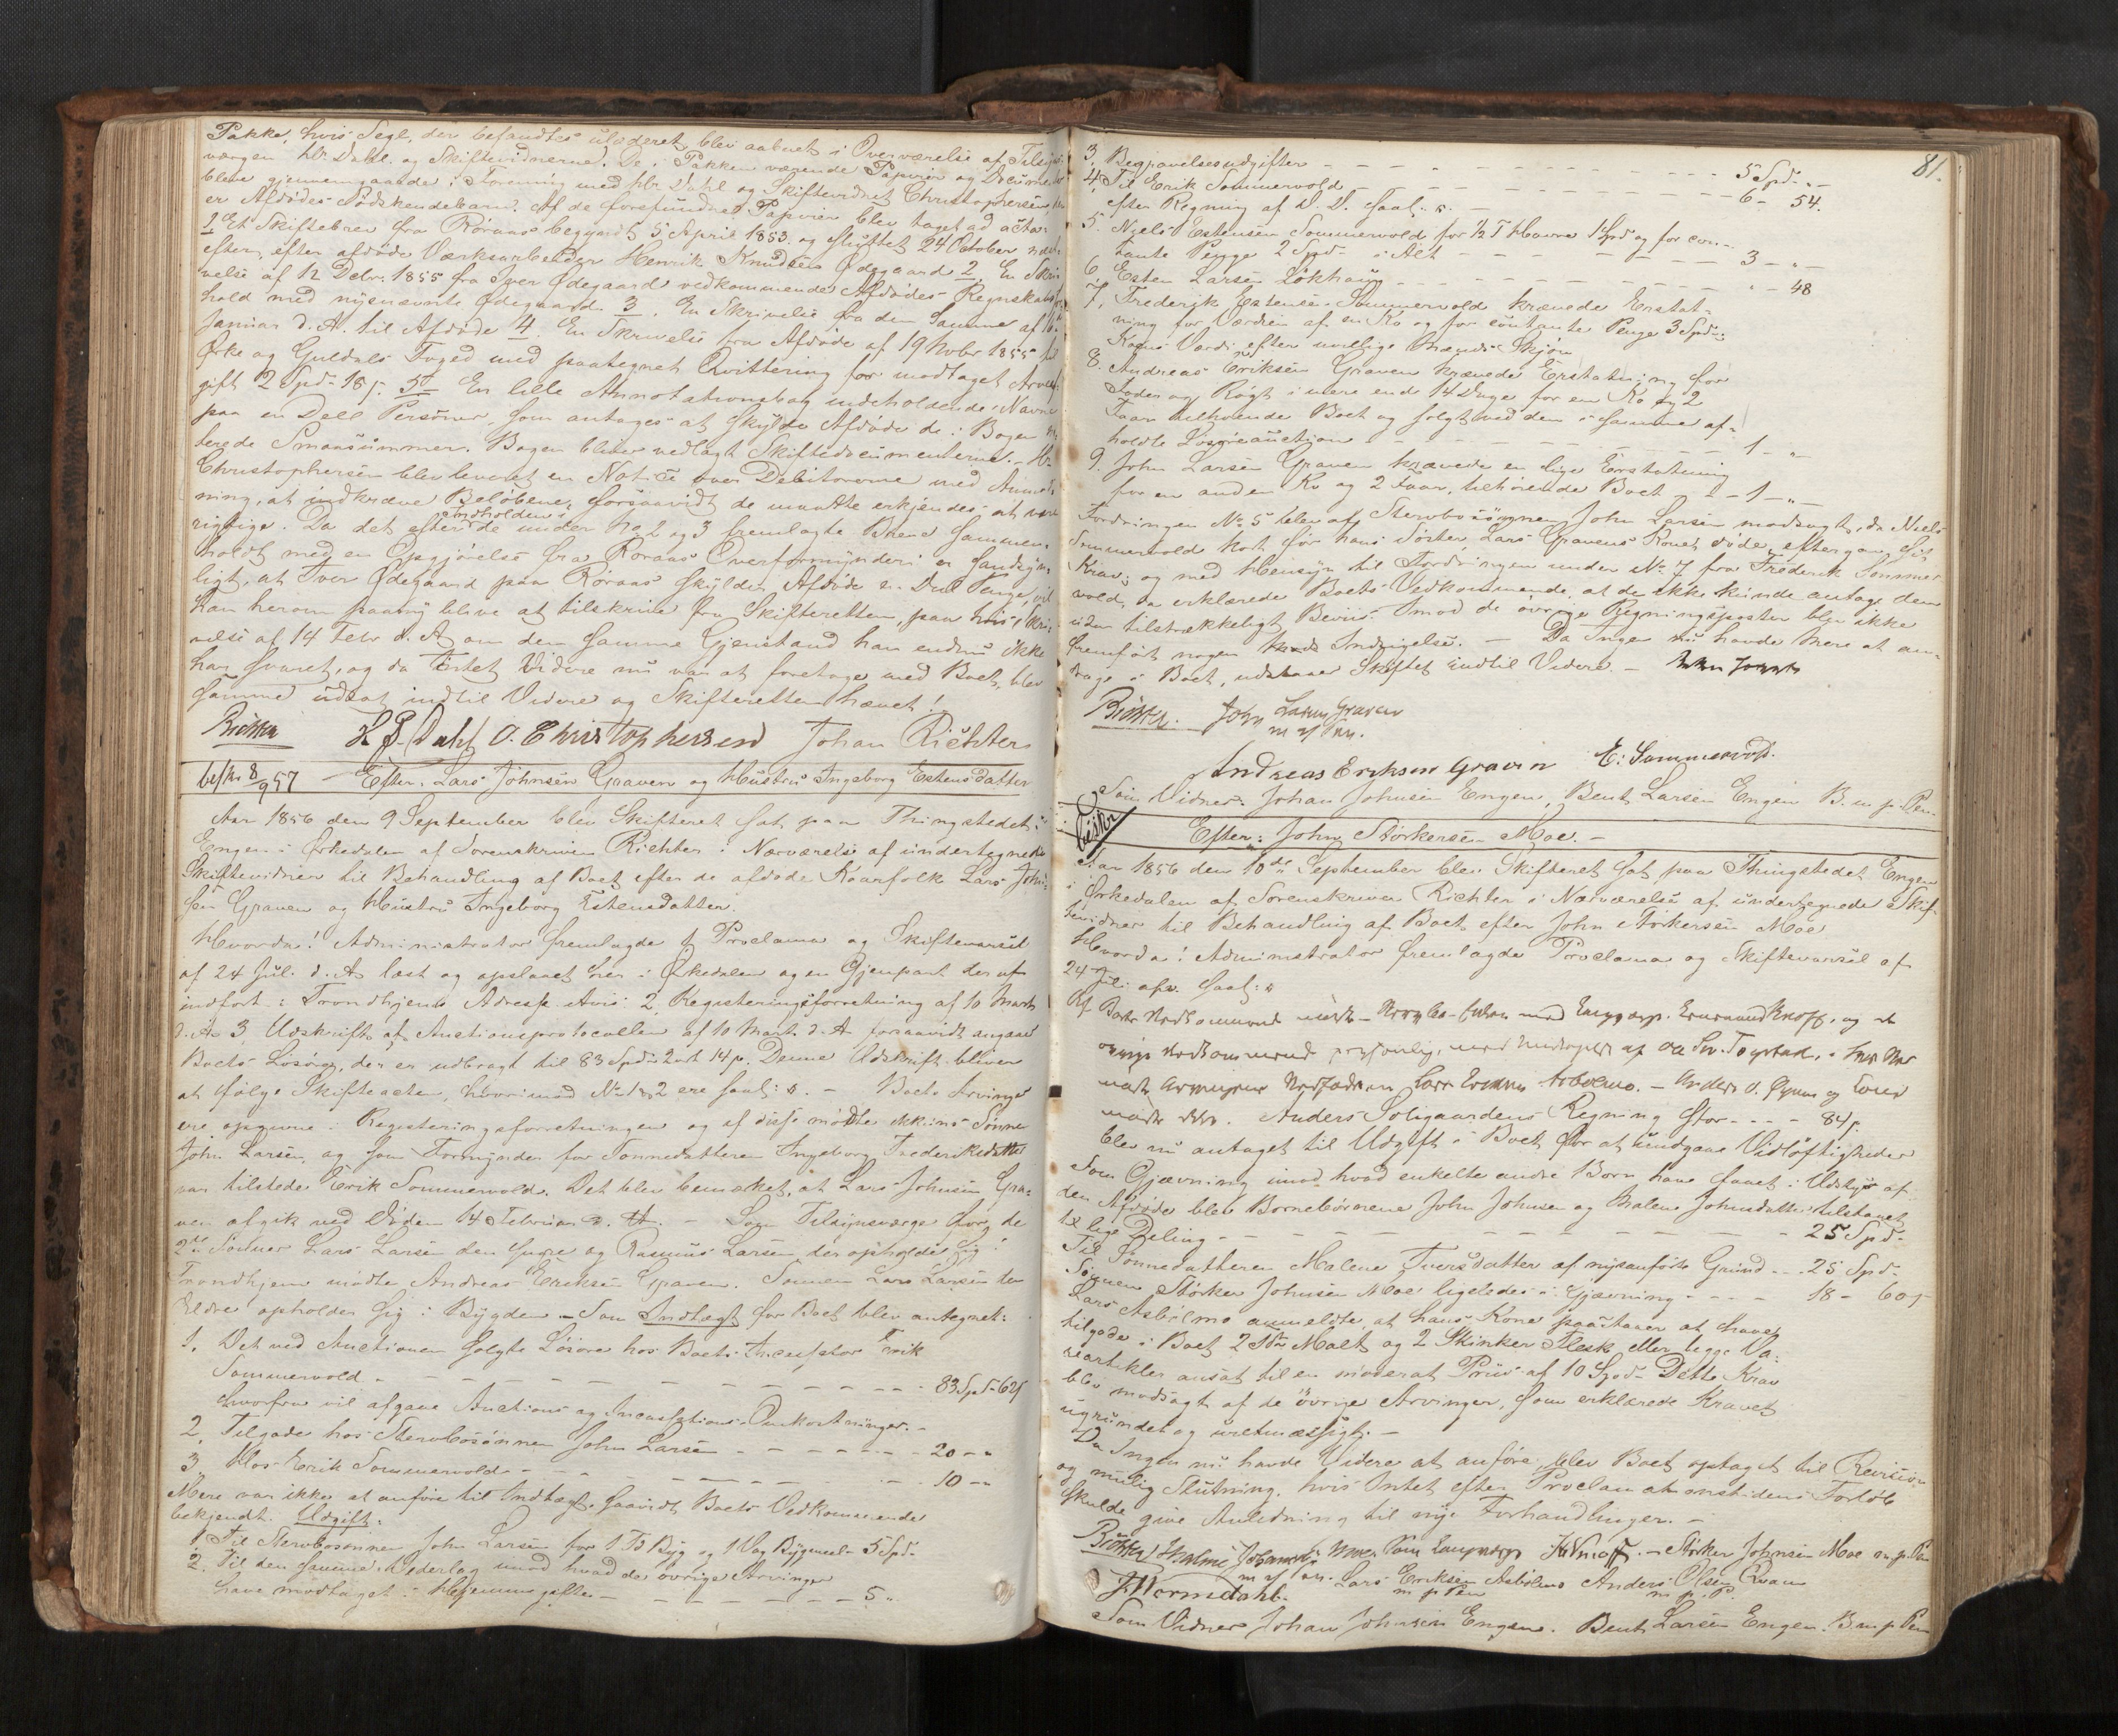 Pakke, hvis Segl, der befandtes ulæderet, blev aabnet i Overværelse af Tilsyns-
værgen Hr Dahl og Skiftevidnerne. De i Pakken værende Papirer og Documenter
bleve gjennemgaaede i Forening med Hr. Dahl og Skiftevidnet Christophersen,
er Afdødes Södskendebarn. Af de forefundne Papirer blev taget ad acta:
1 Et Skiftebrev fra Röraas begyndt 5 April 1853 og sluttet 24 October næst-
efter, efter afdøde Værksarbeider Henrik Knudsen Ødegaard 2. En Skri-
velse af 12 Debr. 1855 fra Iver Ødegaard vedkommende Afdødes Regnskabsfor-
hold med nysnævnte Ødegaard. 3. En Skrivelse fra den Samme af 6
Januar d. A. til Afdøde 4. En Skrivelse fra Afdøde af 19 Novbr 1855 til
Ørke og Guldals Foged med paategnet Qvittering for modtaget Arveaf-
gift 2 Spd 18 s. 5t En lille Annotationsbog indeholdende Navne
paa en Deel Personer, som antages at skylde Afdøde de i Bogen no-
terede Smaasummer. Bogen bliver vedlagt Skiftedocumenterne. - Hr
Christophersen blev leveret en Notice over Debitorerne med Anmod-
ning, at indkræve Beløbene, forsaavidt de maatte erkjendes at være
rigtige. Da det efter Indholdene de under No 2 og 3 fremlagte Breve sammen-
holdt med en Opgjörelse fra Röraas Overformynderi er sandsyn-
ligt, at Iver Ødegaard paa Röraas skylder Afdøde en Deel Penge, vil
han herom paany blive at tilskrive fra Skifteretten, paa hvis Skri-
velse af 14 Febr d. A. om den samme Gjenstand han endnu ikke
har svaret, og da Intet videre nu var at foretage med Boet, blev
samme udsat indtil Videre og Skifteretten hævet!
Richter H P. Dahl O. Christophersen Johan Richter
besk 8/9 57 - Efter Lars Johnsen Graven og Hustru Ingeborg Estensdatter
Aar 1856 den 9 September blev Skifteret sat paa Thingstedet
Engen i Ørkedalen af Sorenskriver Richter i Nærværelse af undertegnede
Skiftevidner til Behandling af Boet efter de afdøde Kaarfolk Lars John-
sen Graven og Hustru Ingeborg Estensdatter.
Hvorda! Administrator fremlagde 1 Proclama og Skiftevarsel
af 24 Jul. d. A. læst og opslaaet her i Ørkedalen og en Gjenpart deraf
indfört i Trondhjems Adresse Avis. 2 Registeringsforretning af 10 Marts
d. A. 3 Udskrift af Auctionsprotocollen af 10 Mart. d. A. forsaavidt angaar
Boets Lösöre, der er udbragt til 83 Spd 2 ort 14 s. Denne Udskrift bliver
at fölge Skifteacten, hvorimod No 1 & 2 ere saal: s. - Boets Arvinger
ere opgivne i Registeringsforretningen og af disse mödte ikkuns Sönnen
John Larsen, og som Formynder for Sonnedatteren Ingeborg Frederiksdatter
var tilstede Erik Sommervold. Det blev bemærket, at Lars Johnsen Gra-
ven afgik ved Döden 14 Februar d. A. - Som Tilsynsværge for de
2de Sönner Lars Larsen den yngre og Rasmus Larsen, der opholde sig i
Trondhjem mödte Andreas Eriksen Graven. Sonnen Lars Larsen den
Eldre opholder sig i Bygden. - Som Indtægt for Boet blev antegnet:
1. Det ved Auctionen solgte Lösöre hos Boets Incassator Erik
Sommervold - - - - 83 Spd 62 s
hvorfra vil afgaae Auctions og Incassations-Omkostninger. -
2. Tilgode hos Stervbosönnen John Larsen - - - - 20 - "
3 Hos Erik Sommervold - - - - 10 - "
Mere var ikke at anföre til Indtægt, saavidt Boets Vedkommende
bekjendt. Udgift:
1. Til Stervbosönnen John Larsen for 1 Td Byg og 1 Vog Bygmeel - 5 Spd -
2. Til den Samme Vederlag imod hvad de övrige Arvinger
have modtaget i Hjemmegifte - - - - 5 "
81.
3. Begravelsesudgifter - - - - 5 Spd - " -
4. Til Erik Sommervold - - - - 6 - 54.
efter Regning af D. D. saal: s. -
5. Niels Estensen Sommervold for 1/2 T Havre 1 Spd og for con-
tante Penge 2 Spd i Alt - - - - 3 - " -
6 Esten Larsen Lökhaug - - - - " - 48
7. Frederik Estensen Sommervold krævede Erstat-
ning for Værdien af en Ko og for contante Penge 3 Spd
Koens Værdi efter uvillige Mænds Skjön
8. Andreas Eriksen Graven krævede Erstatning for
Foder og Rögt i mere end 14 Dage for en Ko og 2
Faar tilhörende Boet og solgt ved den i samme af-
holdte Lösöreauction - - - - 1 - " -
9. John Larsen Graven krævede en lige Erstatning
for en anden Ko og 2 Faar, tilhörende Boet - - 1 - " -
Fordringen No 5 blev af Stervbosönnen John Larsen modsagt, da Niels
Sommervold kort för hans Söster Lars Gravens Kones Döde eftergav sit
Krav; og med Hensyn til Fordringen under No 7 fra Frederik Sommer-
vold, da erklærede Boets Vedkommende, at de ikke kunde antage den
uden tilstrækkeligt Beviis. Imod de övrige Regningsposter blev ikke
fremfört nogen Indsigelse. - Da Ingen nu havde Mere at an-
drage i Boet, udstaaer Skiftet indtil Videre. -
Richter. John Larsen Graven
m p Pen.
Andreas Eriksen Graven E: Sommervold.
Som Vidner: Johan Johnsen Engen, Bent Larsen Engen B. m. p. Pen.
beskr Efter: John Störkersen Moe. -
Aar 1856 den 10de September blev Skifteret sat paa Thingstedet Engen
i Ørkedalen af Sorenskriver Richter i Nærværelse af undertegnede Skif-
tevidner til Behandling af Boet efter John Störkersen Moe.
Hvorda! Administrator fremlagde Proclama og Skiftevarsel af
24 Jul: afv. saal: s
Af Boets Vedkommende mödte Enken med Laugværge Knoff, og de
övrige Vedkommende personlig, med Undtagelse af
Lars Eriksen Asbölmo. - Anders O. Qvam og
mödte . Anders Soligaardens Regning stor - - - 84 s.
blev nu antaget til Udgift i Boet for at undgaae Vidlöftigheder
Som Gjævning imod hvad enkelte andre Börn have faaet i Udstyr af
den Afdøde blev Bornebörnene John Johnsen og Malene Johnsdatter tilstaaet
til lige Deling - - - - 25 Spd -
Til Sönnedatteren Malene Iversdatter af nysanförte Grund - - 25 Spd -
Sönnen Störker Johnsen Moe ligeledes i Gjævning - - - 18 - 60 s -
Lars Asbölmo anmeldte, at hans Kone paastaaer at have
tilgode i Boet 2 Tdr Malt og 2 Skinker Flesk, eller begge Va-
reartikler ansat til en moderat Priis af 10 Spd - Dette Krav
blev modsagt af de övrige Arvinger, som erklærede Kravet
ugrundet og uretmæssigt. -
Da Ingen nu havde Videre at anföre, blev Boet optaget til Revision
og mulig Slutning, hvis Intet efter Proclamationstidens Forlöb
skulde give Anledning til nye Forhandlinger. -
Richter Johnsen Moe Som Laugværge Knoff. - Störker Johnsen Moe m. p. Pen
m p Pen. Lars Eriksen Asbölmo Anders Olsen Qvam
J. Wormdahl. m p Pen m. p. P.
Som Vidner Johan Johnsen Engen. Bent Larsen Engen B m p Pen